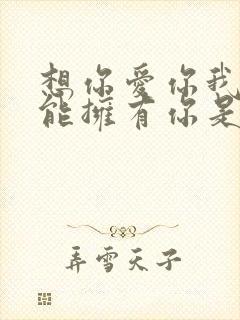 想你愛你我
能擁有你是
弄雪天子